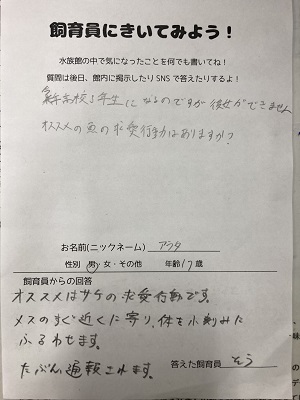 飼育員にきいてみよう!
水族館の中で気になったことを何でも書いてね!
質問は後日、館内に掲示したりSNSで答えたりするよ!
高校3年生になるのですが彼女ができません
オススメの魚の求愛行動はありますか?
お名前(ニックネーム) アラタ
性別 男・女・その他 年齢17歳
飼育員からの回答
オススメはサケの求愛行動です。
メスのすぐ近くに寄り、体を小刻みに
ふるわせます。
たぶん通報されます。
答えた飼育員 そう